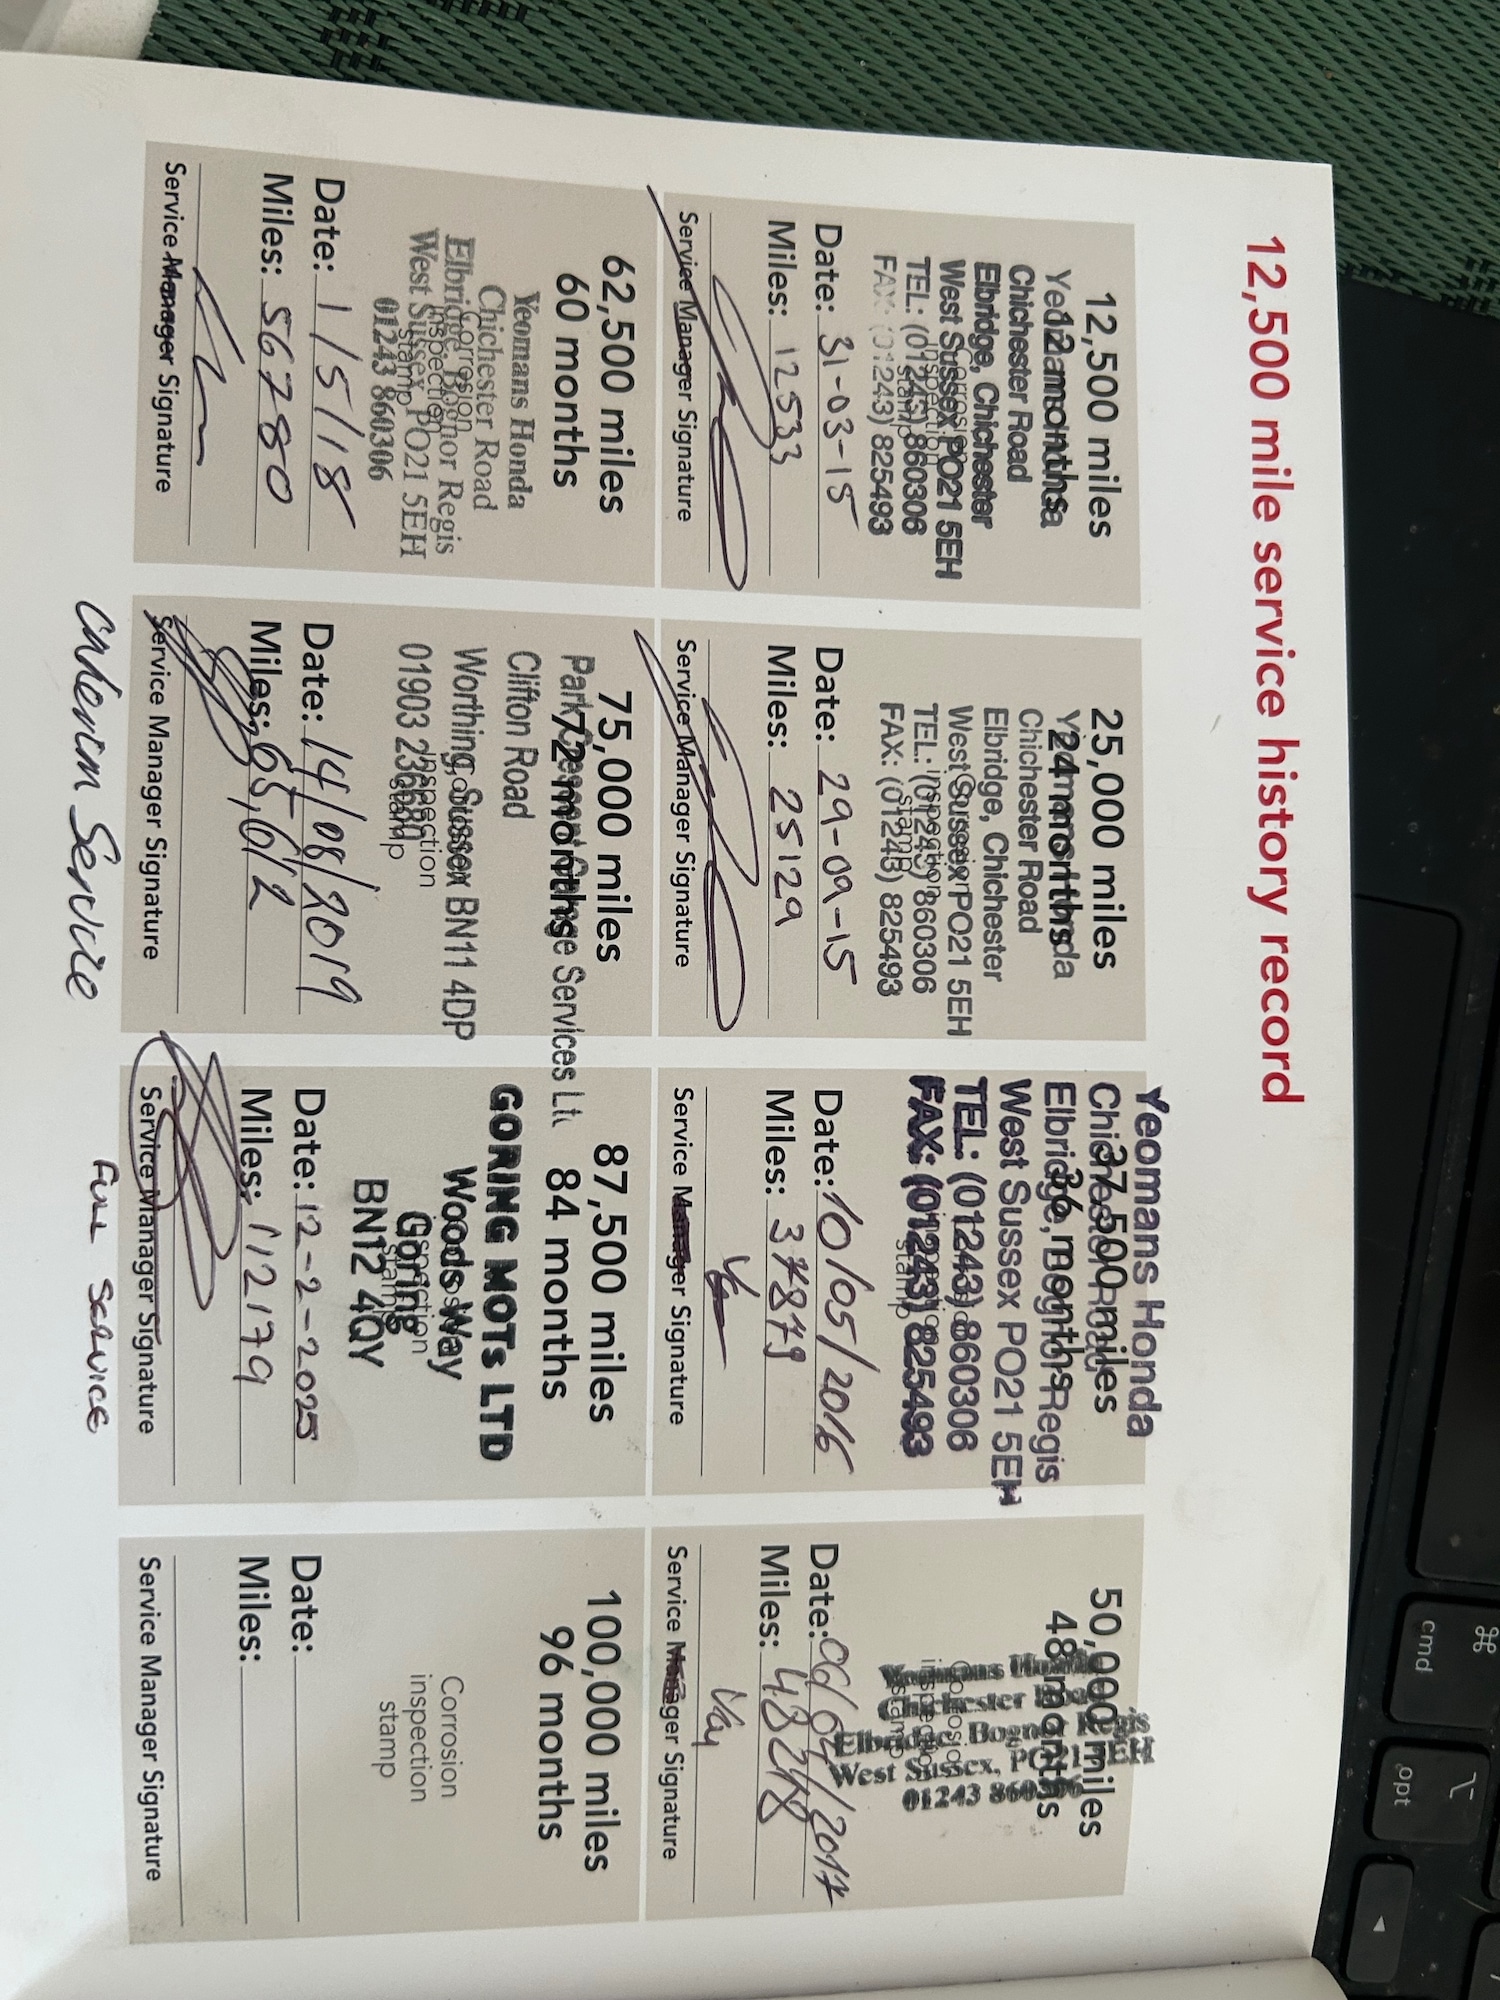 12,500 mile service history record
12,500 miles
12 months
Chichester Road
Elbridge, Chichester
West Sussex PO21 5EH
TEL: (01243) 860306
FAX: (01243) 825493
Date: 31-03-15
Miles: 12533
Service Manager Signature
25,000 miles
24 months
Chichester Road
Elbridge, Chichester
West Sussex PO21 5EH
TEL: (01243) 860306
FAX: (01243) 825493
Date: 29-09-15
Miles: 25129
Service Manager Signature
Yeomans Honda
37,500 miles
36 months
West Sussex PO21 5EH
TEL: (01243) 860306
FAX: (01243) 825493
Date: 10/05/2016
Miles: 37879
Service Manager Signature
50,000 miles
48 months
Yeomans Honda
Chichester Road
Elbridge, Bognor Regis
West Sussex, PO21 5EH
01243 860306
Date: 06/04/2017
Miles: 48248
Service Manager Signature
62,500 miles
60 months
Yeomans Honda
Chichester Road
Elbridge, Bognor Regis
West Sussex PO21 5EH
01243 860306
Date: 1/5/18
Miles: 56780
Service Manager Signature
75,000 miles
72 months
Services
Clifton Road
Worthing, Sussex BN11 4DP
01903 236680
Date: 14/08/2019
Miles: 65,612
Service Manager Signature
Service
87,500 miles
84 months
GORING MOTs LTD
Woods Way
Goring
BN12 4QY
Date: 12-2-2025
Miles: 112179
Service Manager Signature
Full Service
100,000 miles
96 months
Corrosion
inspection
stamp
Date:
Miles:
Service Manager Signature
⌘
cmd
⌥
opt